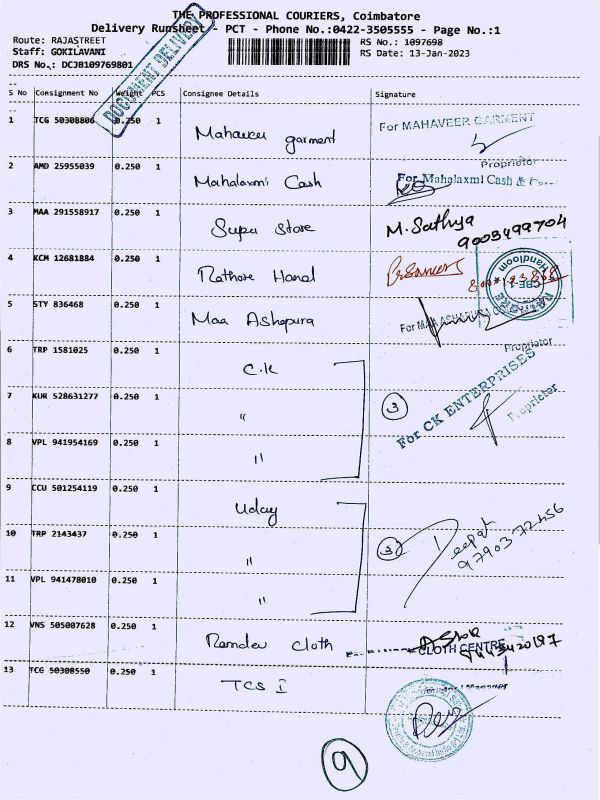 THE PROFESSIONAL COURIERS, Coimbatore
Delivery Runsheet - PCT - Phone No.:0422-3505555 - Page No.:1
Route: RAJASTREET
RS No.: 1097698
Staff: GOKILAVANI
RS Date: 13-Jan-2023
DRS No.: DCJB109769801
DOCUMENT DELIVERY
S No Consignment No Weight PCS Consignee Details Signature
1 TCG 50308806 0.250 1 Mahaveer garment For MAHAVEER GARMENT
Proprietor
2 AMD 25955039 0.250 1 Mahalaxmi Cash For Mahalaxmi Cash &
3 MAA 291558917 0.250 1 Supu Store M. Sathya
9003499704
4 KCM 12681884 0.250 1 Rathore Hand
Handloom
CBE-1
RATHORE
5 STY 836468 0.250 1 Maa Ashapura For MAA ASHAPURA
Proprietor
6 TRP 1581025 0.250 1 C.K
7 KUR 528631277 0.250 1 " 3 For CK ENTERPRISES
Proprietor
8 VPL 941954169 0.250 1 "
9 CCU 501254119 0.250 1 Uday
10 TRP 2143437 0.250 1 " 3 Deepak
9790372456
11 VPL 941478010 0.250 1 "
12 VNS 505007628 0.250 1 Ramdev Cloth Ashok
CLOTH CENTRE
13 TCG 50308550 0.250 1 TCS I
9